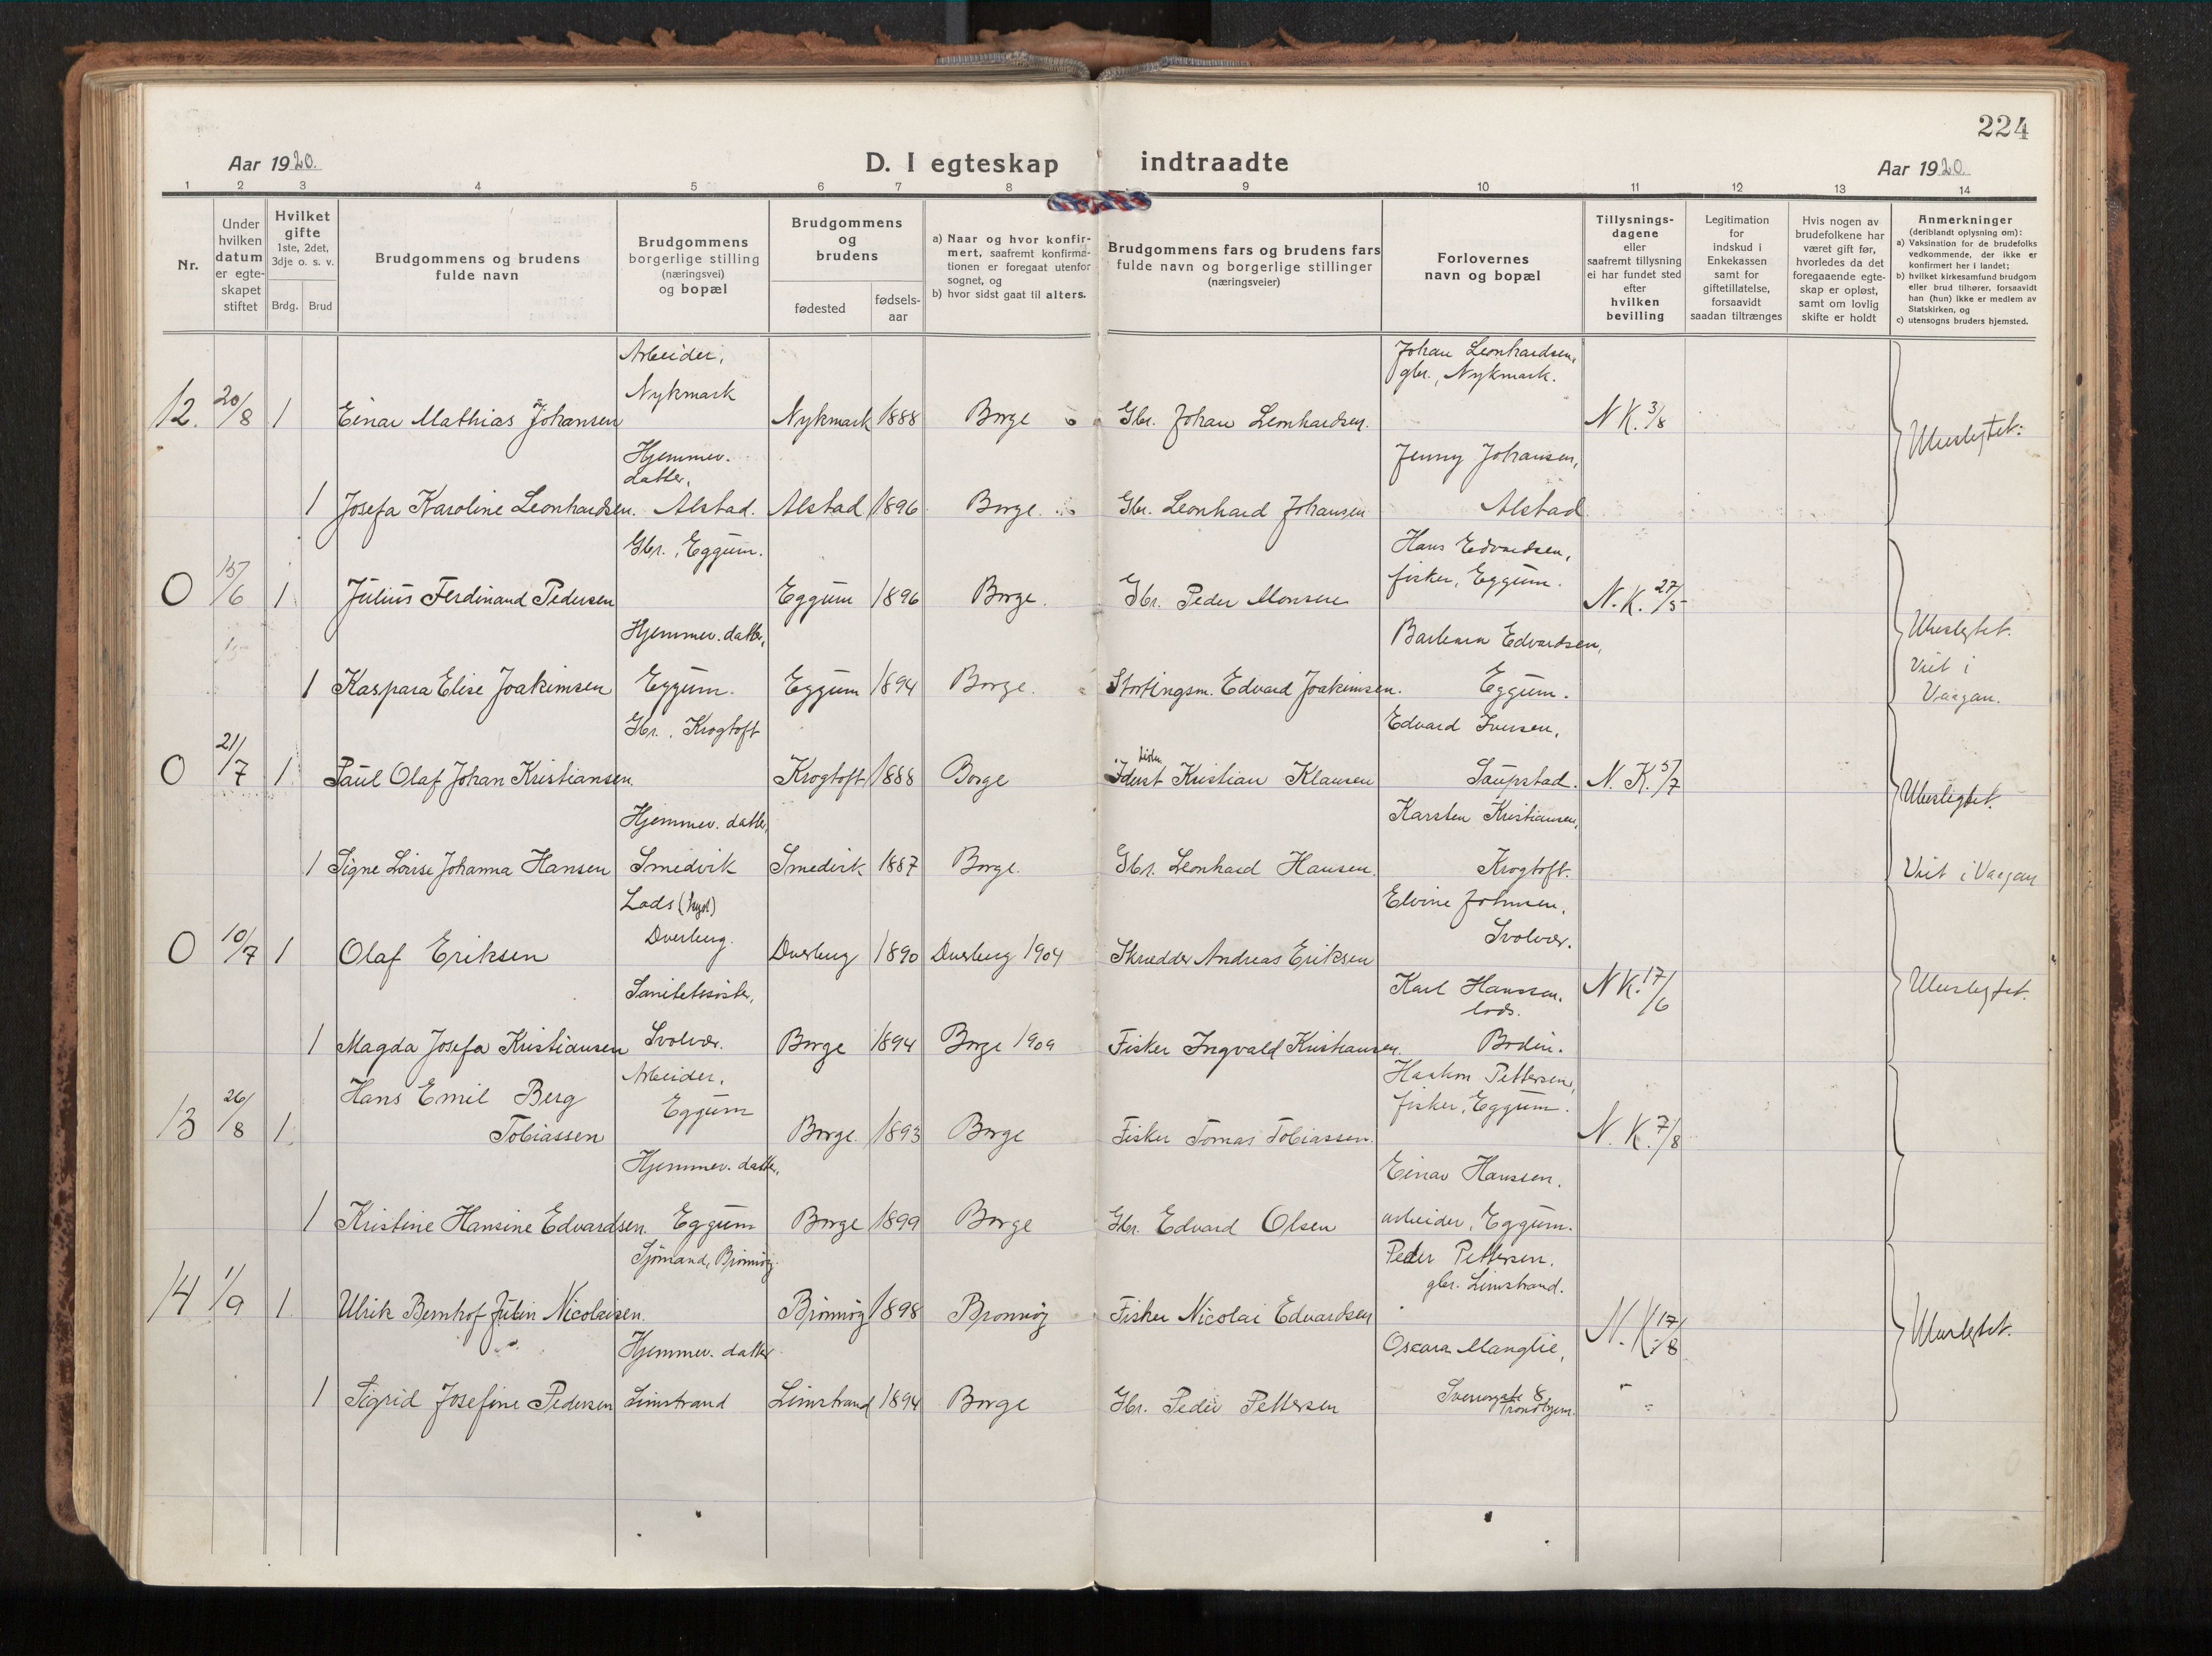 224
Aar 1920.
D. I egteskap indtraadte
Aar 1920.
1 2 3 4 5 6 7 8 9 10 11 12 13 14
Nr.
Under hvilken datum er egte- skapet stiftet
Hvilket gifte 1ste, 2det, 3dje o. s. v.
Brdg. Brud
Brudgommens og brudens fulde navn
Brudgommens borgerlige stilling (næringsvei) og bopæl
Brudgommens og brudens
fødested
fødsels- aar
a) Naar og hvor konfir- mert, saafremt konfirma- tionen er foregaat utenfor sognet, og
b) hvor sidst gaat til alters.
Brudgommens fars og brudens fars fulde navn og borgerlige stillinger (næringsveier)
Forlovernes navn og bopæl
Tillysnings- dagene eller saafremt tillysning ei har fundet sted efter hvilken bevilling
Legitimation for indskud i Enkekassen samt for giftetillatelse, forsaavidt saadan tiltrænges
Hvis nogen av brudefolkene har været gift før, hvorledes da det foregaaende egte- skap er opløst, samt om lovlig skifte er holdt
Anmerkninger (deriblandt oplysning om):
a) Vaksination for de brudefolks vedkommende, der ikke er konfirmert her i landet;
b) hvilket kirkesamfund brudgom eller brud tilhører, forsaavidt han (hun) ikke er medlem av Statskirken, og
c) utensogns bruders hjemsted.
Arbeider, Nykmark
Johan Leonhardsen, gbr., Nykmark.
12. 20/8 1 Einar Mathias Johansen Nykmark 1888 Borge Gbr. Johan Leonhardsen. N K. 3/8 Ubeslegtet.
Hjemmev. datter,
Jenny Johansen,
1 Josefa Karoline Leonhardsen. Alstad. Alstad 1896 Borge Gbr. Leonhard Johansen Alstad
Gbr., Eggum.
Hans Edvardsen, fisker, Eggum.
0 15/6 1 Julius Ferdinand Pedersen Eggum 1896 Borge. Gbr. Peder Monsen N. K. 27/5 Ubeslegtet.
Hjemmev. datter,
Barbara Edvardsen,
1 Kaspara Elise Joakimsen Eggum. Eggum 1894 Borge. Stortingsm. Edvard Joakimsen. Eggum. Viet i Vaagan.
Gbr., Krogtoft
Edvard Iversen,
0 21/7 1 Paul Olaf Johan Kristiansen. Krogtoft 1888 Borge Kristian Klausen Saupstad. N. K. 5/7 Ubeslegtet.
Hjemmev. datter,
Karsten Kristiansen,
1 Signe Lovise Johanna Hansen Smedvik Smedvik 1887 Borge. Gbr. Leonhard Hansen. Krogtoft. Viet i Vaagan
Lods (kyst) Dverberg.
Elvine Johnsen, Svolvær.
0 10/7 1 Olaf Eriksen Dverberg 1890 Dverberg 1904 Skrædder Andreas Eriksen N K. 17/6 Ubeslegtet.
Sanitetssøster,
Karl Hanssen. lods.
1 Magda Josefa Kristiansen Svolvær. Borge 1894 Borge 1909 Fisker Ingvald Kristiansen. Bodin.
Arbeider, Eggum
Haakon Pettersen, fisker, Eggum.
13 26/8 1. Hans Emil Berg Tobiassen Borge. 1893 Borge Fisker Tomas Tobiassen. N. K. 7/8
Hjemmev. datter,
Einar Hanssen.
1 Kristine Hansine Edvardsen. Eggum Borge 1899 Borge Gbr. Edvard Olsen arbeider, Eggum.
Sjømand, Brønnøy.
Peder Pettersen. gbr. Limstrand.
14 1/9 1. Ulrik Bernhof Julin Nicolaisen. Brönnöy 1898 Brönnöy Fisker Nicolai Edvardsen N. K. 17/8 Ubeslegtet.
Hjemmev. datter
Oscara Manglie,
1 Sigrid Josefine Pedersen Limstrand Limstrand 1894 Borge Gbr. Peder Pettersen 8 Trondhjem.